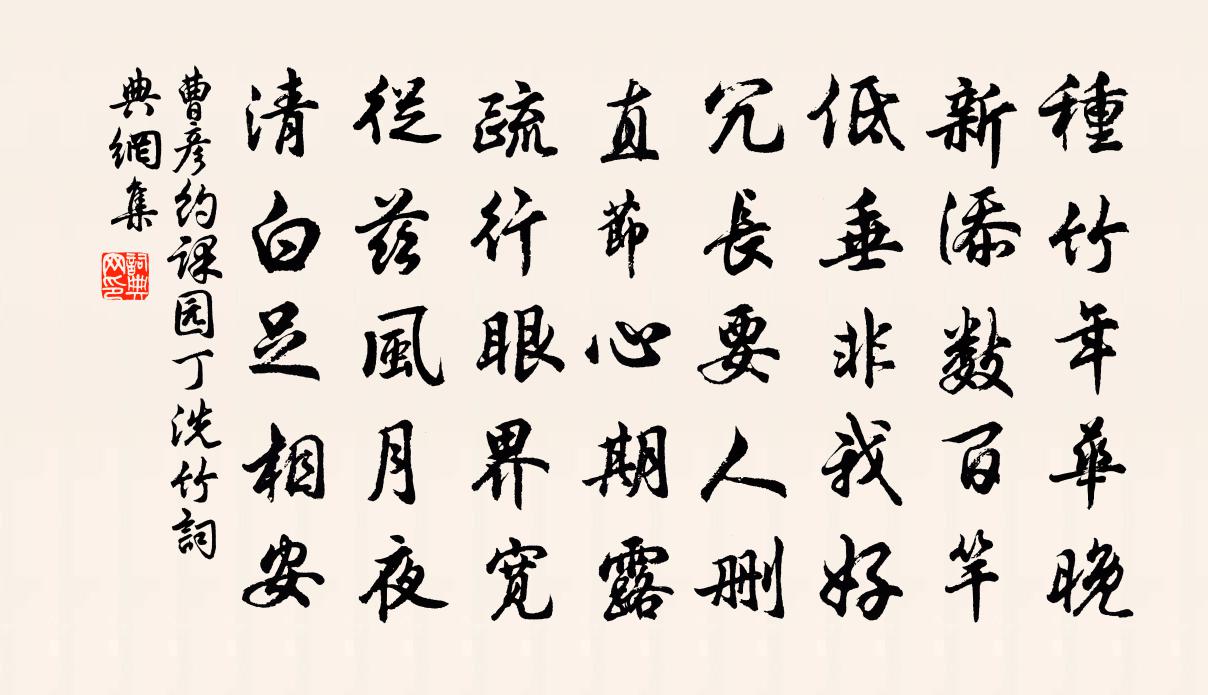 種竹年華晚
新添數百竿
低垂非我好
冗長要人删
直節心期露
疏行眼界寬
從茲風月夜
清白足相安
曹彦約課园丁洗竹詞
典網集
詞典
网印